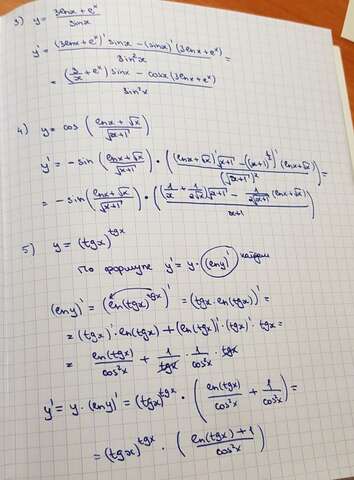 3) y = (3lnx + eˣ) / sinx
y' = ((3lnx + eˣ)' sinx − (sinx)' (3lnx + eˣ)) / sin²x =
= ((3/x + eˣ) sinx − cosx (3lnx + eˣ)) / sin²x
4) y = cos ((lnx + √x) / √(x+1))
y' = −sin ((lnx + √x) / √(x+1)) · (((lnx + √x)' √(x+1) − ((x+1)^(1/2))' (lnx + √x)) / (√(x+1))²) =
= −sin ((lnx + √x) / √(x+1)) · (((1/x + 1/(2√x)) √(x+1) − 1/(2√(x+1)) (lnx + √x)) / (x+1))
5) y = (tgx)^(tgx)
По формуле y' = y · (lny)' найдем
(lny)' = (ln(tgx)^(tgx))' = (tgx · ln(tgx))' =
= (tgx)' · ln(tgx) + (ln(tgx))' · (tgx)' · tgx =
= ln(tgx)/cos²x + 1/tgx · 1/cos²x · tgx
y' = y · (lny)' = (tgx)^(tgx) · (ln(tgx)/cos²x + 1/cos²x) =
= (tgx)^(tgx) · ((ln(tgx) + 1) / cos²x)